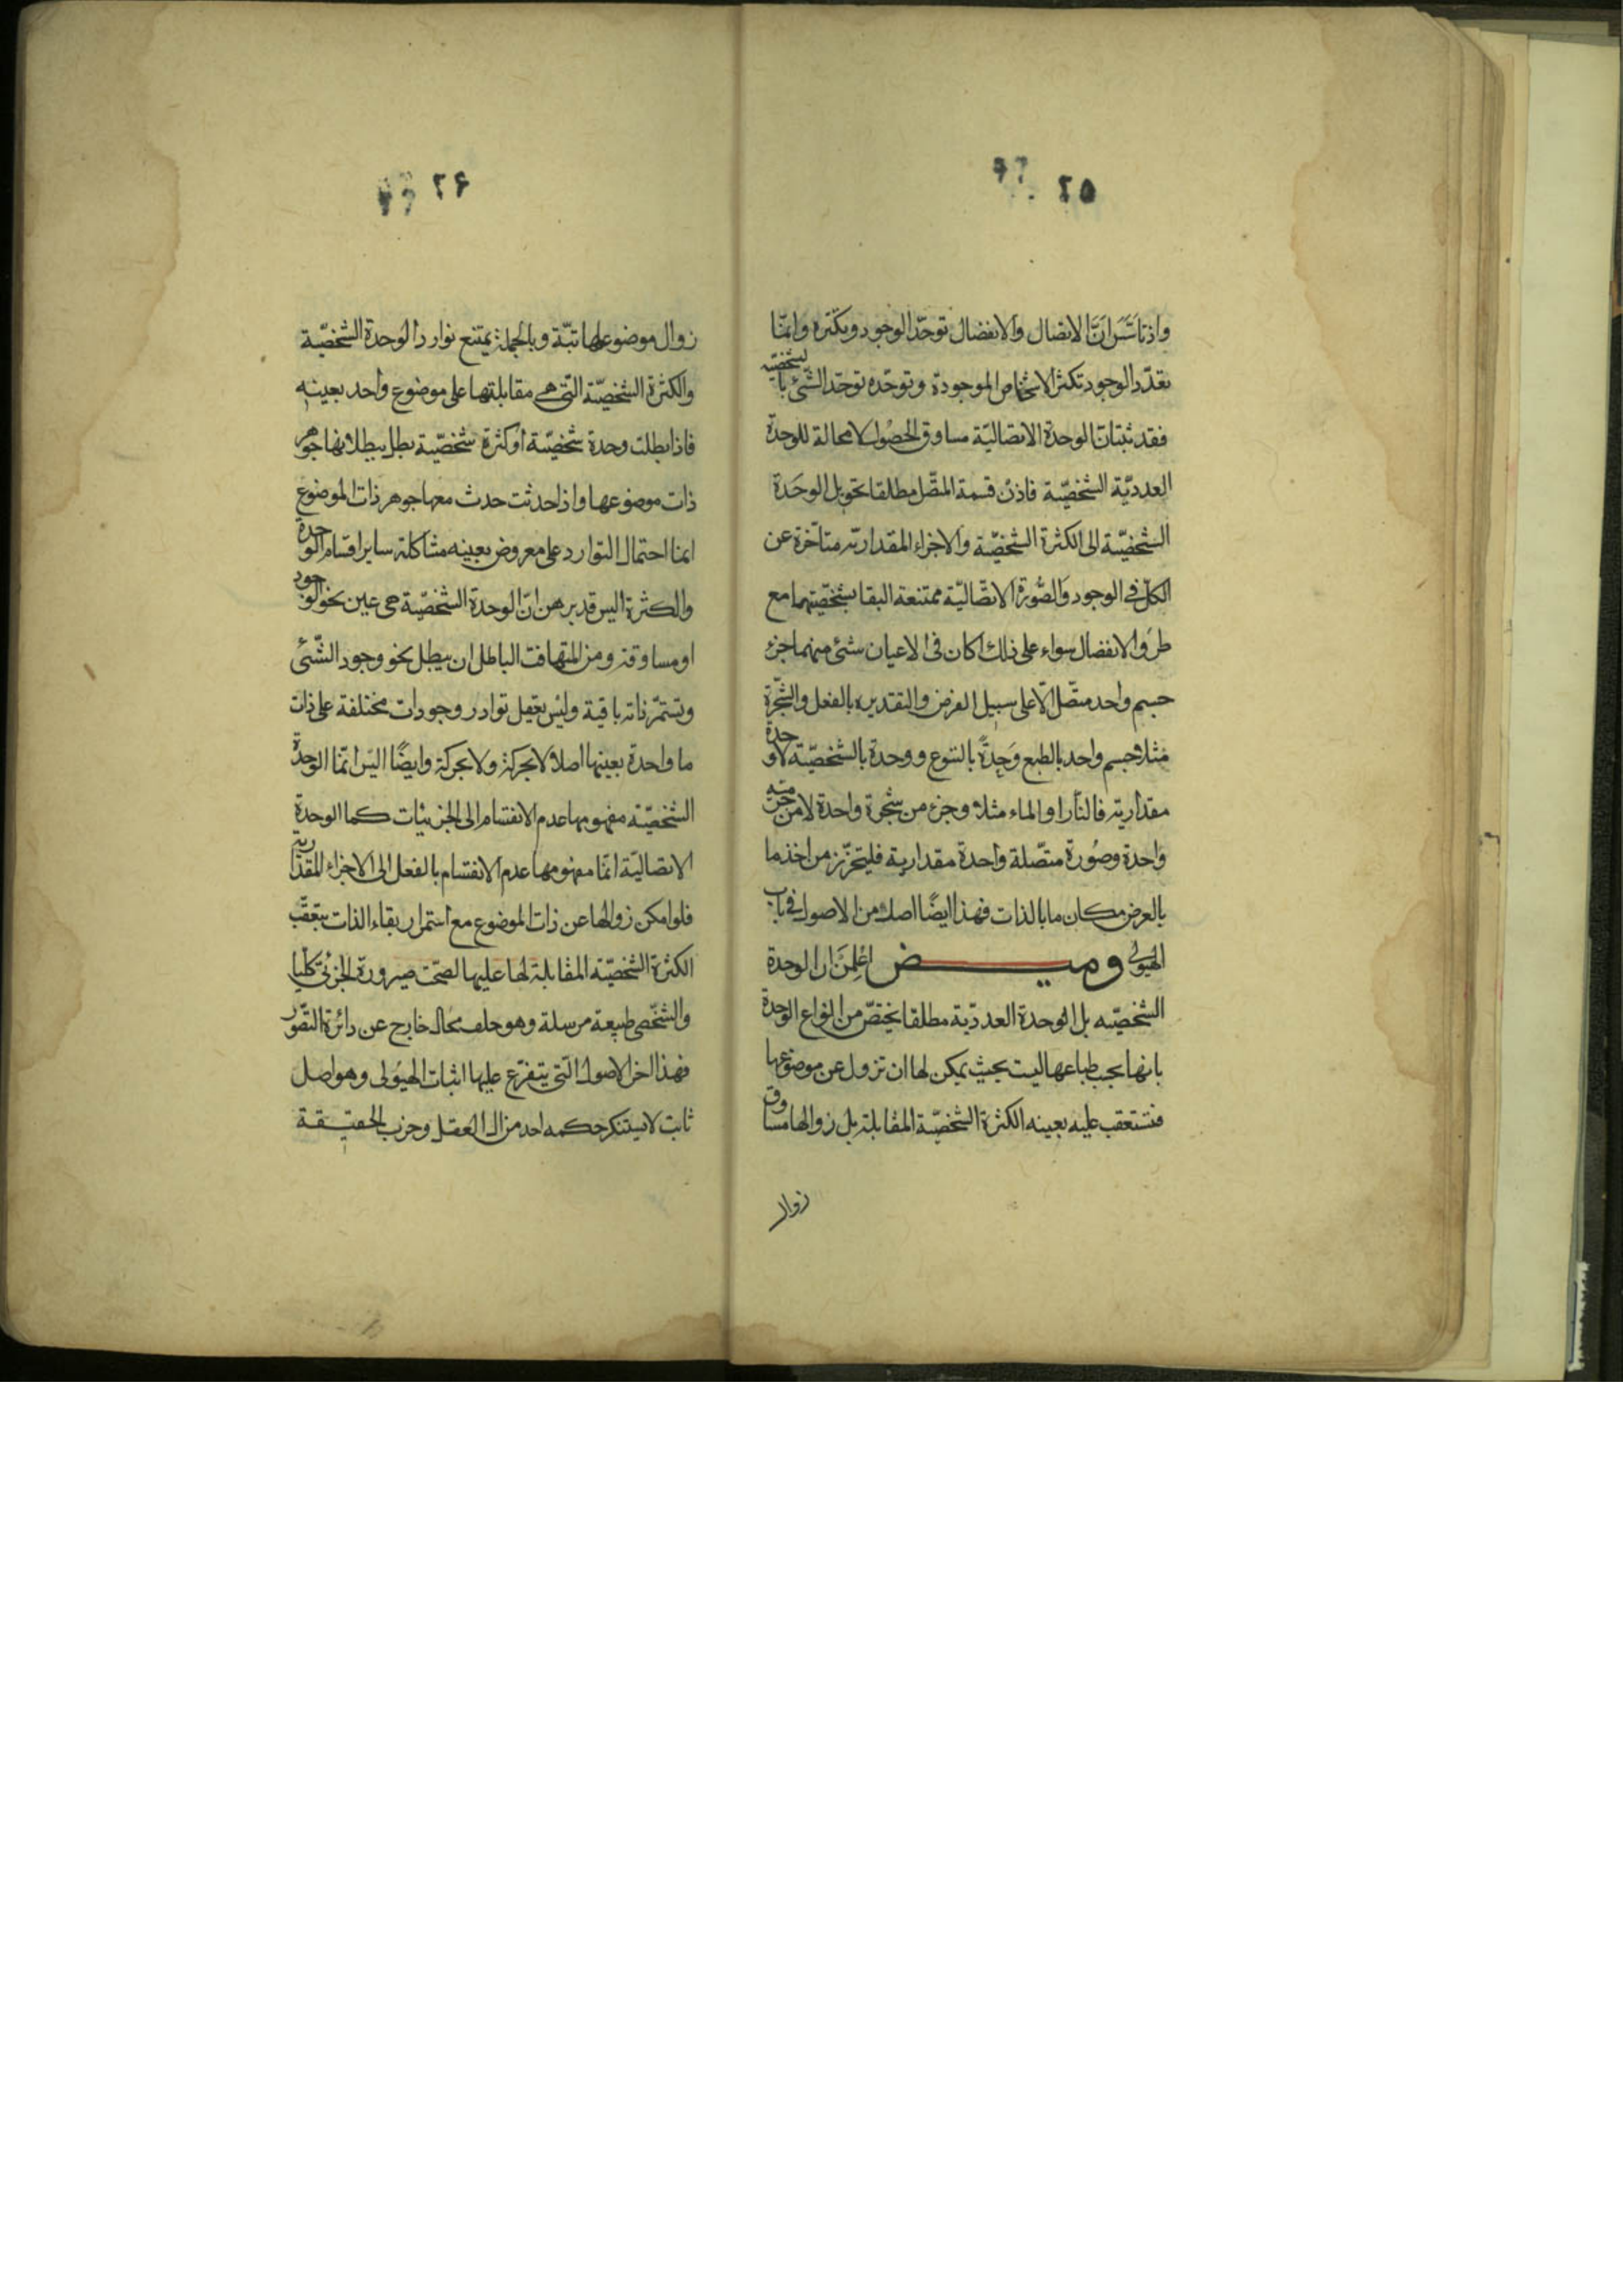 ٢٥
واذ تاسس ان الاتصال والانفصال توحّد الوجود وتكثره وانمّا
تعدّد الوجود تكثر الاشخاص الموجودة وتوحّده توحّد الشئ بالشخصيّة
فقد ثبت ان الوحدة الاتصاليّة مساوق الحصُول لا محالة للوحدة
العدديّة الشخصيّة فاذن قسمة المتّصل مطلقا تحويل الوحَدة
الشخصيّة الى الكثرة الشخصيّة والاجزاء المقداريّة متأخرة عن
الكلّ فى الوجود والصُّورة الاتّصاليّة ممتنعة البقا بشخصّيتها مع
طرو الانفصال سواء على ذلك اكان فى الاعيان شئ منهما جزء
جسم واحد متصّل الّا على سبيل الفرض والتقدير بالفعل والشّجّرة
مثلا جسم واحد بالطبع وَحِدةً بالنوع ووحدة بالشخصيّة لا وحدة
مقداريّة فالنار او الماء مثلا وجزء من شجرة واحدة لا من
واحدة وصُورة متصّلة واحدة مقدارية فليتحرّز من اخذ ما
بالعرض مكان ما بالذات فهذا ايضًا اصل من الاصول فى باب
الهيولى وميــــض اعْلمَنَّ ان الوحدة
الشخصيّه بل الوحدة العدديّة مطلقا يختصّ من انواع الوحدة
بانها بحسب طباعها ليست بحيث يمكن لها ان تزول عن موضوعها
فتستعقب عليه بعينه الكثرة الشخصيّة المقابلة بل زوالها مساوق
زوال
٢۶
زوال موضوعها تبّة وبالجملة يمتنع توارد الوحدة الشخصيّة
والكثرة الشخصيّة التى هى مقابلتها على موضوع واحد بعينه
فاذا بطلت وحدة شخصيّة او كثرة شخصيّة بطل ببطلانها جوهر
ذات موضوعها واذا حدثت حدث معها جوهر ذات الموضوع
انما احتمال التوارد على معروض بعينه مشاكلة ساير اقسام الوحدة
والكثرة اليس قد برهن انّ الوحدة الشخصيّة هى عين نحو الوجود
او مساوقته ومن المتهافت الباطل ان يبطل نحو وجود الشّئ
وتستمرّ ذاته باقية وليس يعقل توارد وجودات مختلفة على ذات
ما واحدة بعينها اصلا لا بحركة ولا بحركة وايضًا اليس انمّا الوحدة
الشخصيّة مفهومها عدم الانقسام الى الجزئيات كما الوحدة
الاتصاليّة انمّا مفهومها عدم الانقسام بالفعل الى الاجزاء المقدارية
فلو امكن زوالها عن ذات الموضوع مع استمرار بقاء الذات بتعقّب
الكثرة الشخصيّة المقابلة لها عليها لصحّت صيرورة الجزئى كلّيا
والشخصى طبيعة مرسلة وهو خلف محال خارج عن دائرة التصّور
فهذا اخر الاصول الّتى يتفرّع عليها اثبات الهيُولى وهو اصل
ثابت لا يستنكر حكمه احد من ال العقل وحزب الحقيقة